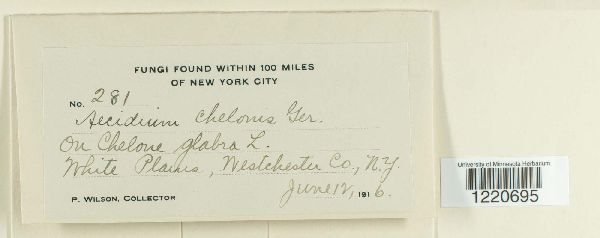 FUNGI FOUND WITHIN 100 MILES
OF NEW YORK CITY
No. 281
Aecidium Chelonis Ger.
On Chelone glabra L.
White Plains, Westchester Co., N.Y.
June 12, 1916.
P. WILSON, COLLECTOR
University of Minnesota Herbarium
1220695